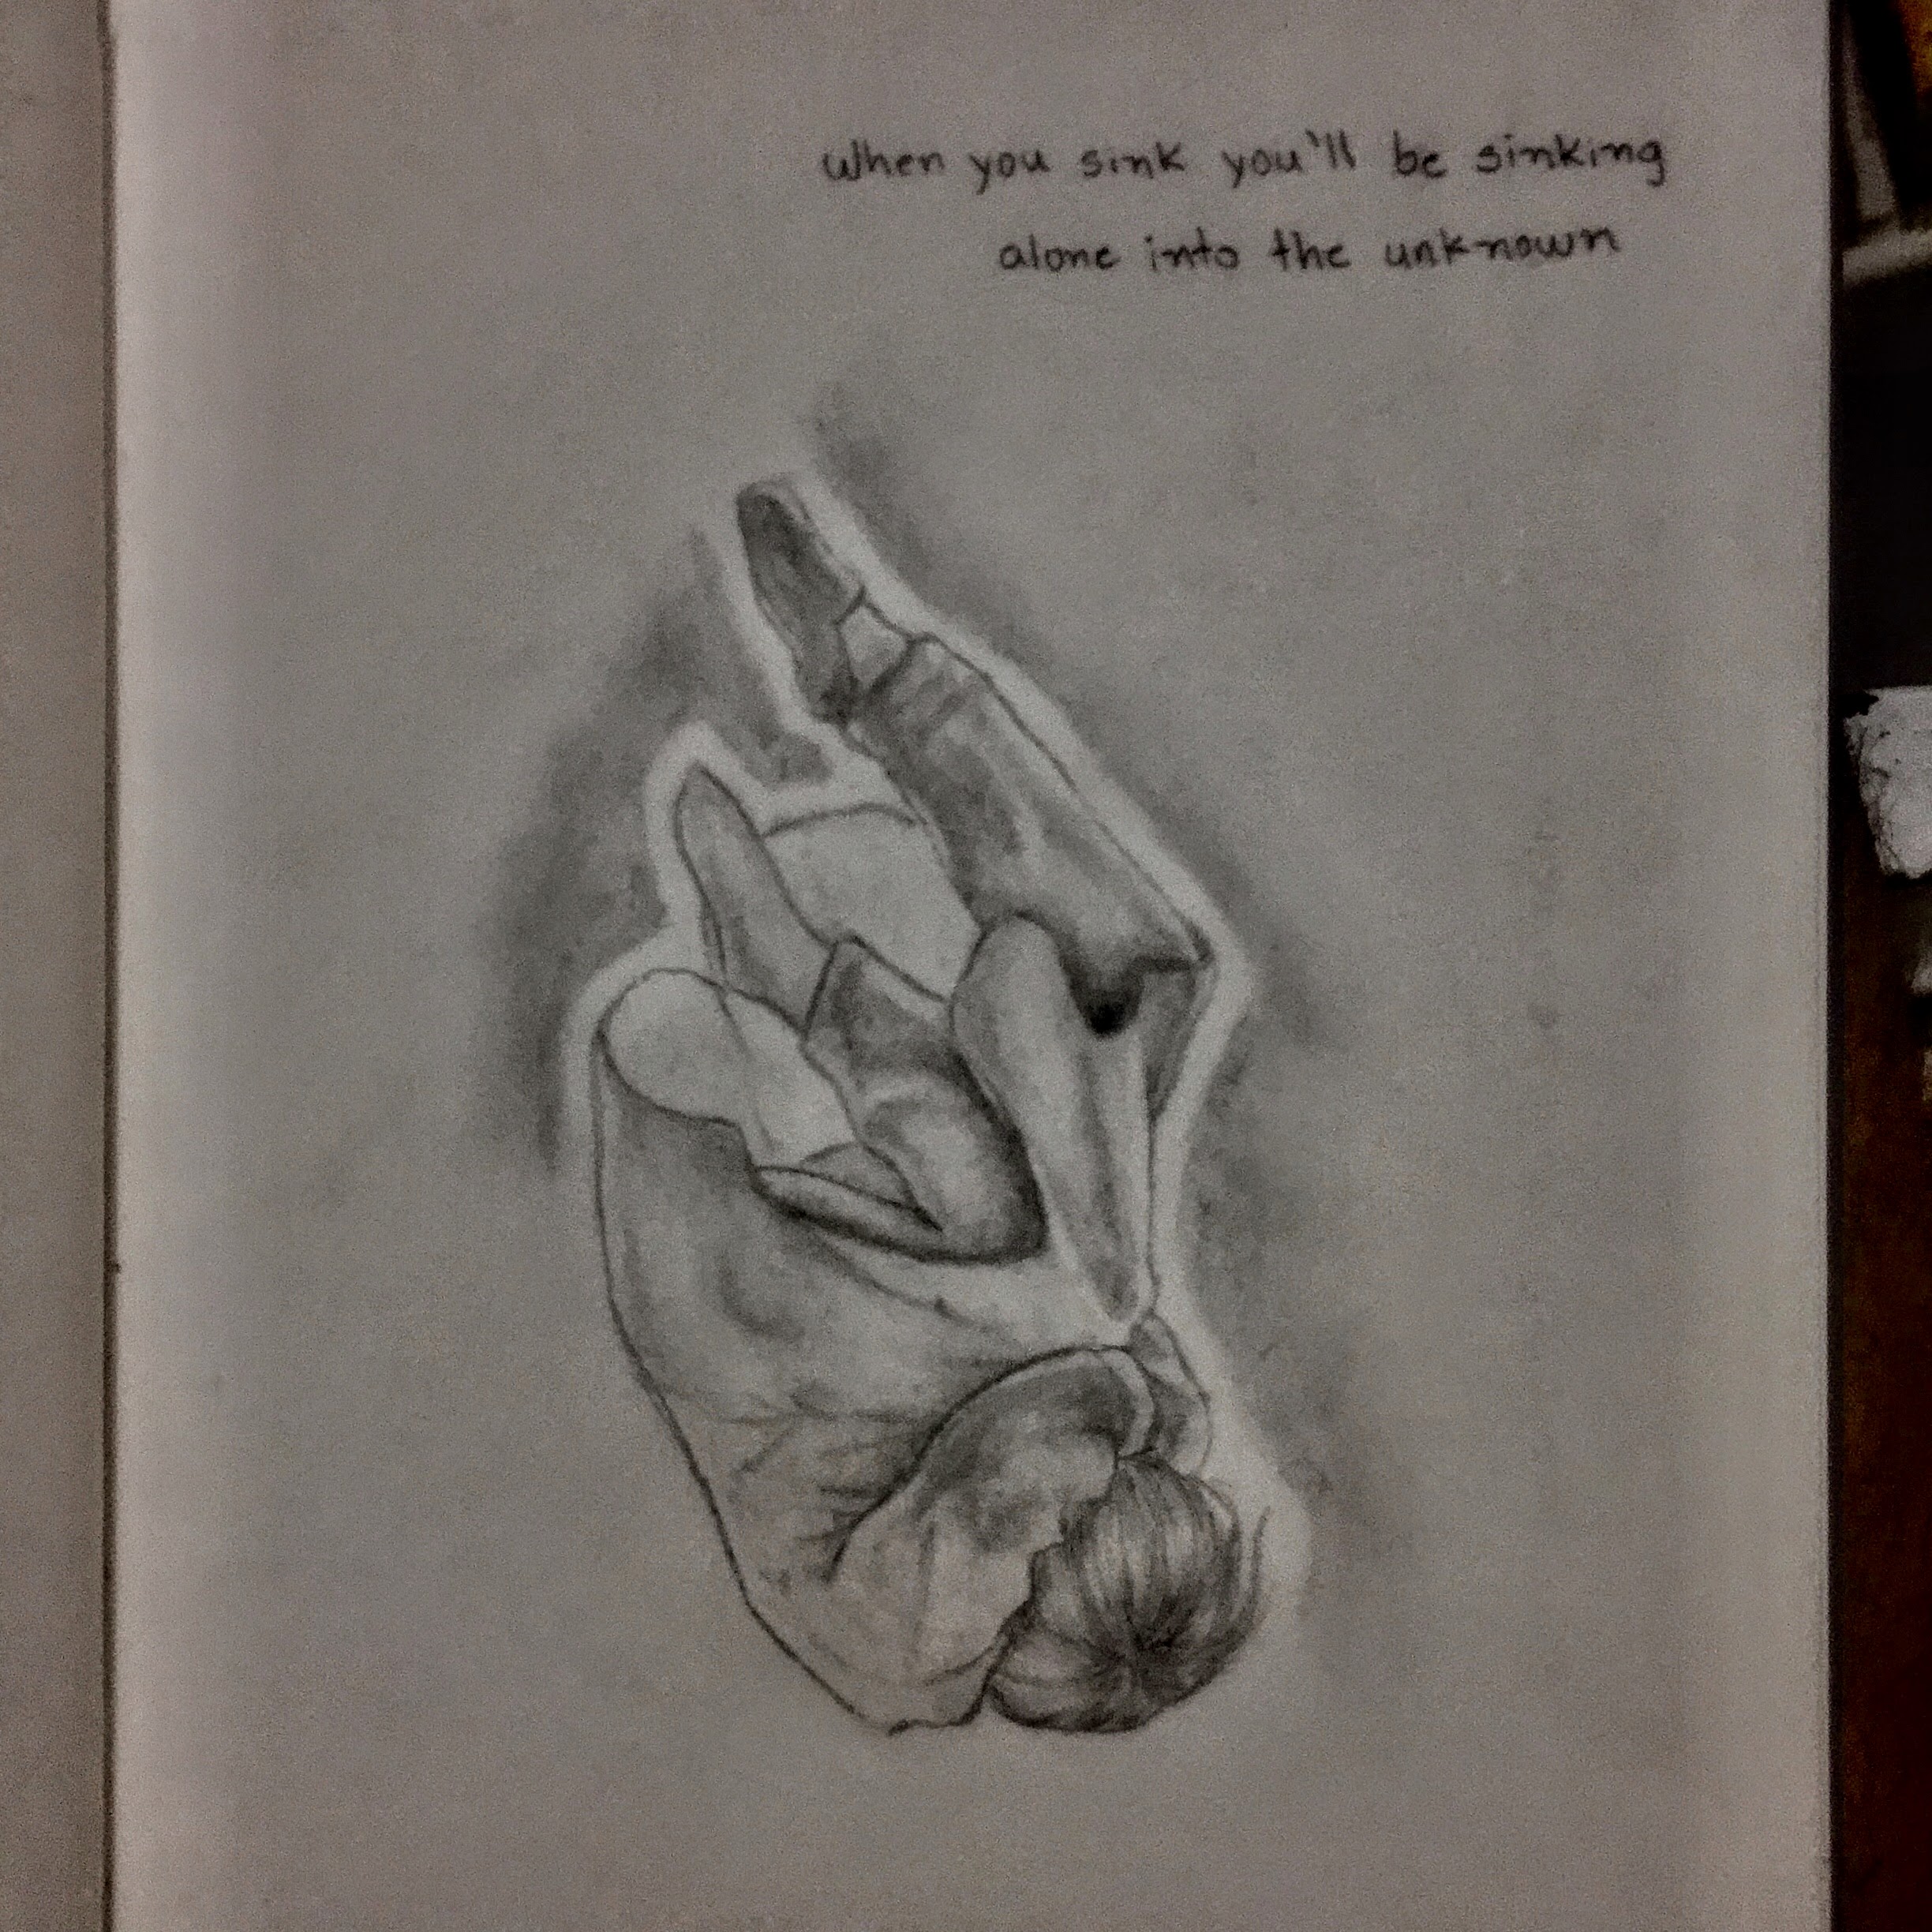 when you sink you'll be sinking
alone into the unknown